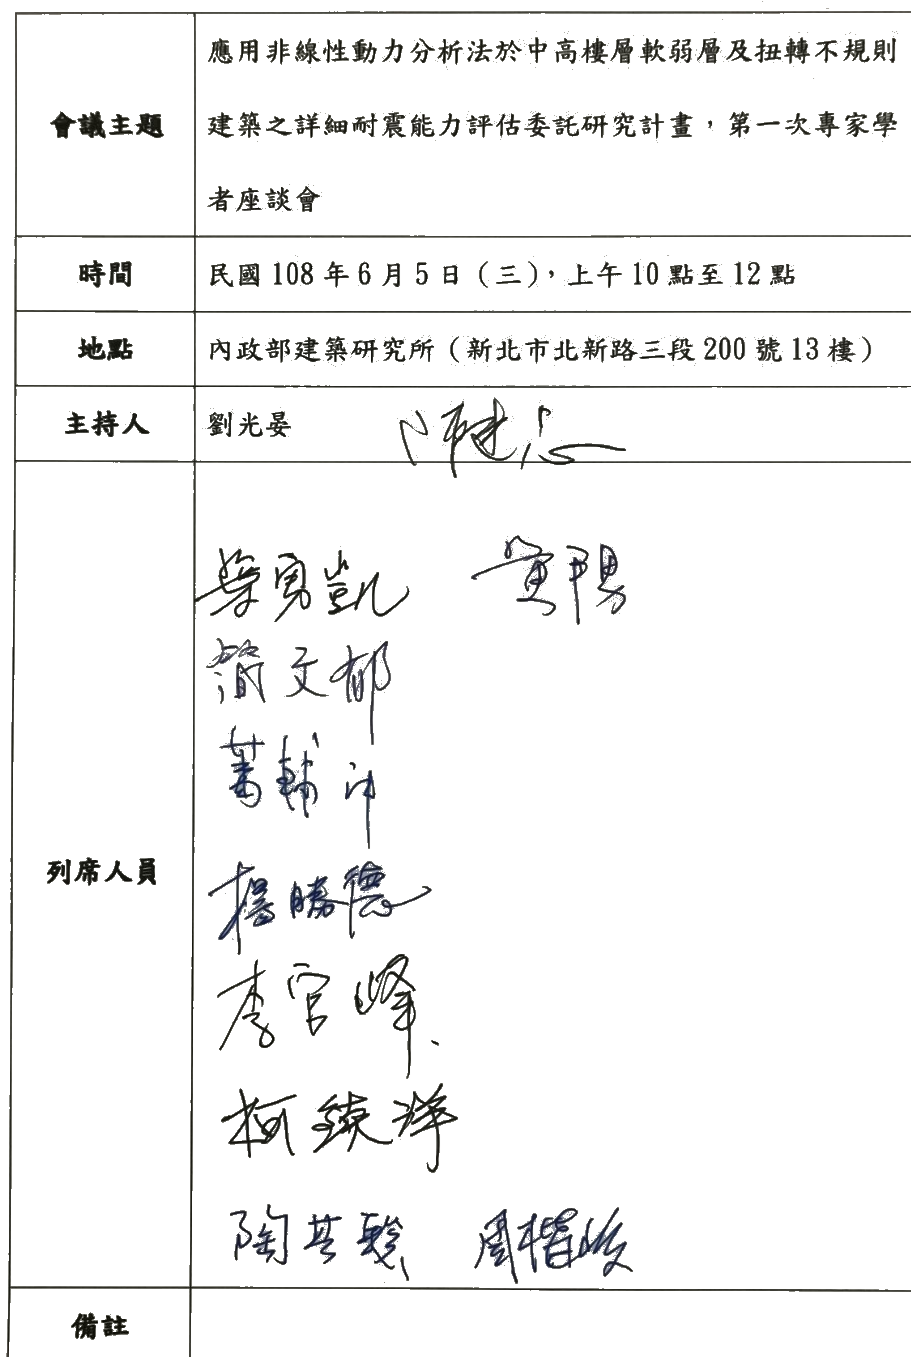 會議主題
應用非線性動力分析法於中高樓層軟弱層及扭轉不規則
建築之詳細耐震能力評估委託研究計畫，第一次專家學
者座談會
時間
民國 108 年 6 月 5 日（三），上午 10 點至 12 點
地點
內政部建築研究所（新北市北新路三段 200 號 13 樓）
主持人
劉光晏
列席人員
葉勇凱
簡文郁
楊勝德
李官峰
柯鎮洋
陶其駿 周楷峻
備註